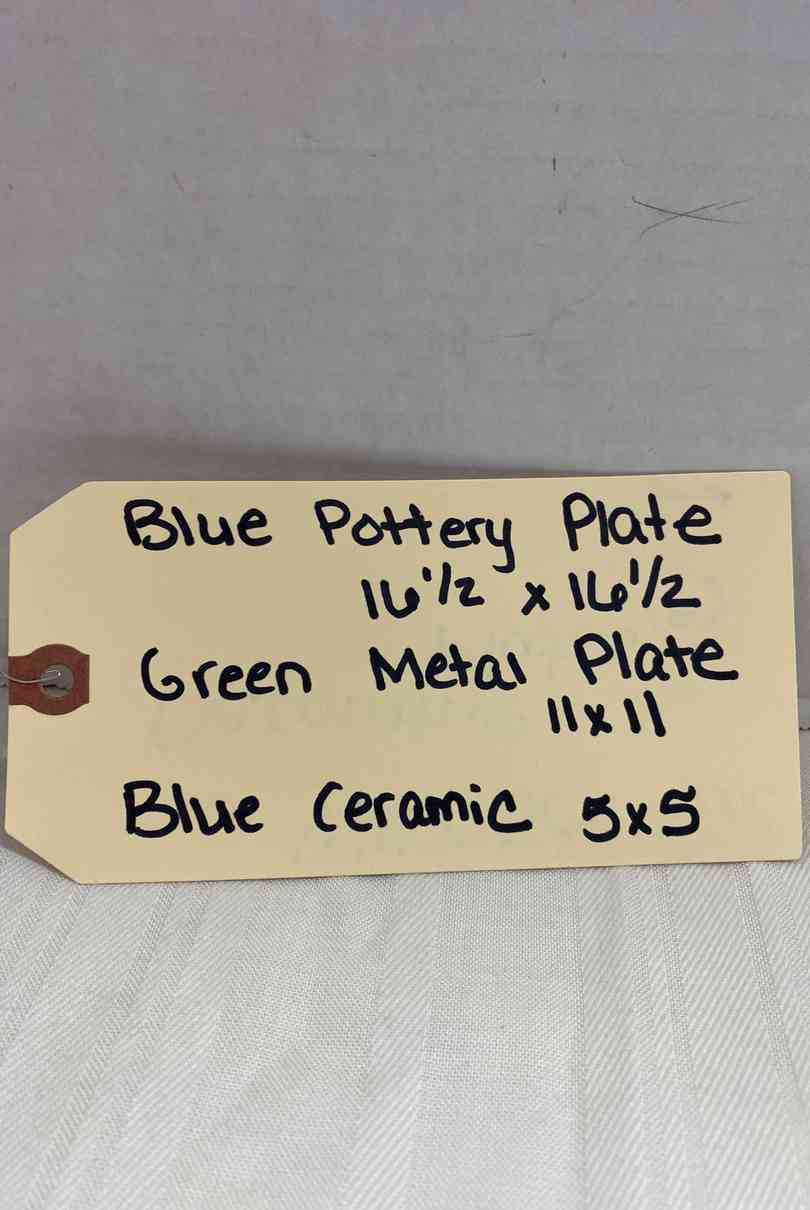 Blue Pottery Plate
16 1/2 x 16 1/2
Green Metal Plate
11x11
Blue Ceramic 5x5